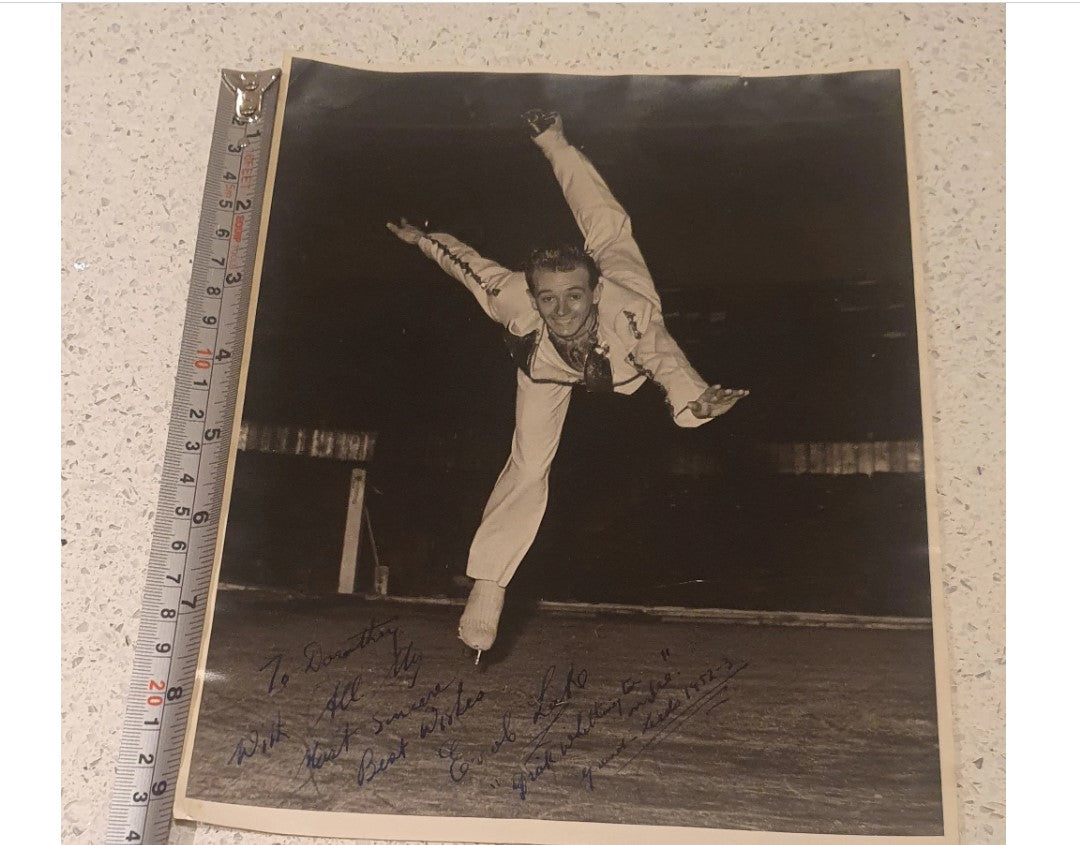 To Dorothy
With All My
Most Sincere
Best Wishes
"Dick Whittington
on Ice"
Grand Leeds 1952-3
2 3 4 5 6 7 8 9 10 1 2 3 4 5 6 7 8 9 20 1 2 3 4
1 2 3 4 5 6 7 8 9